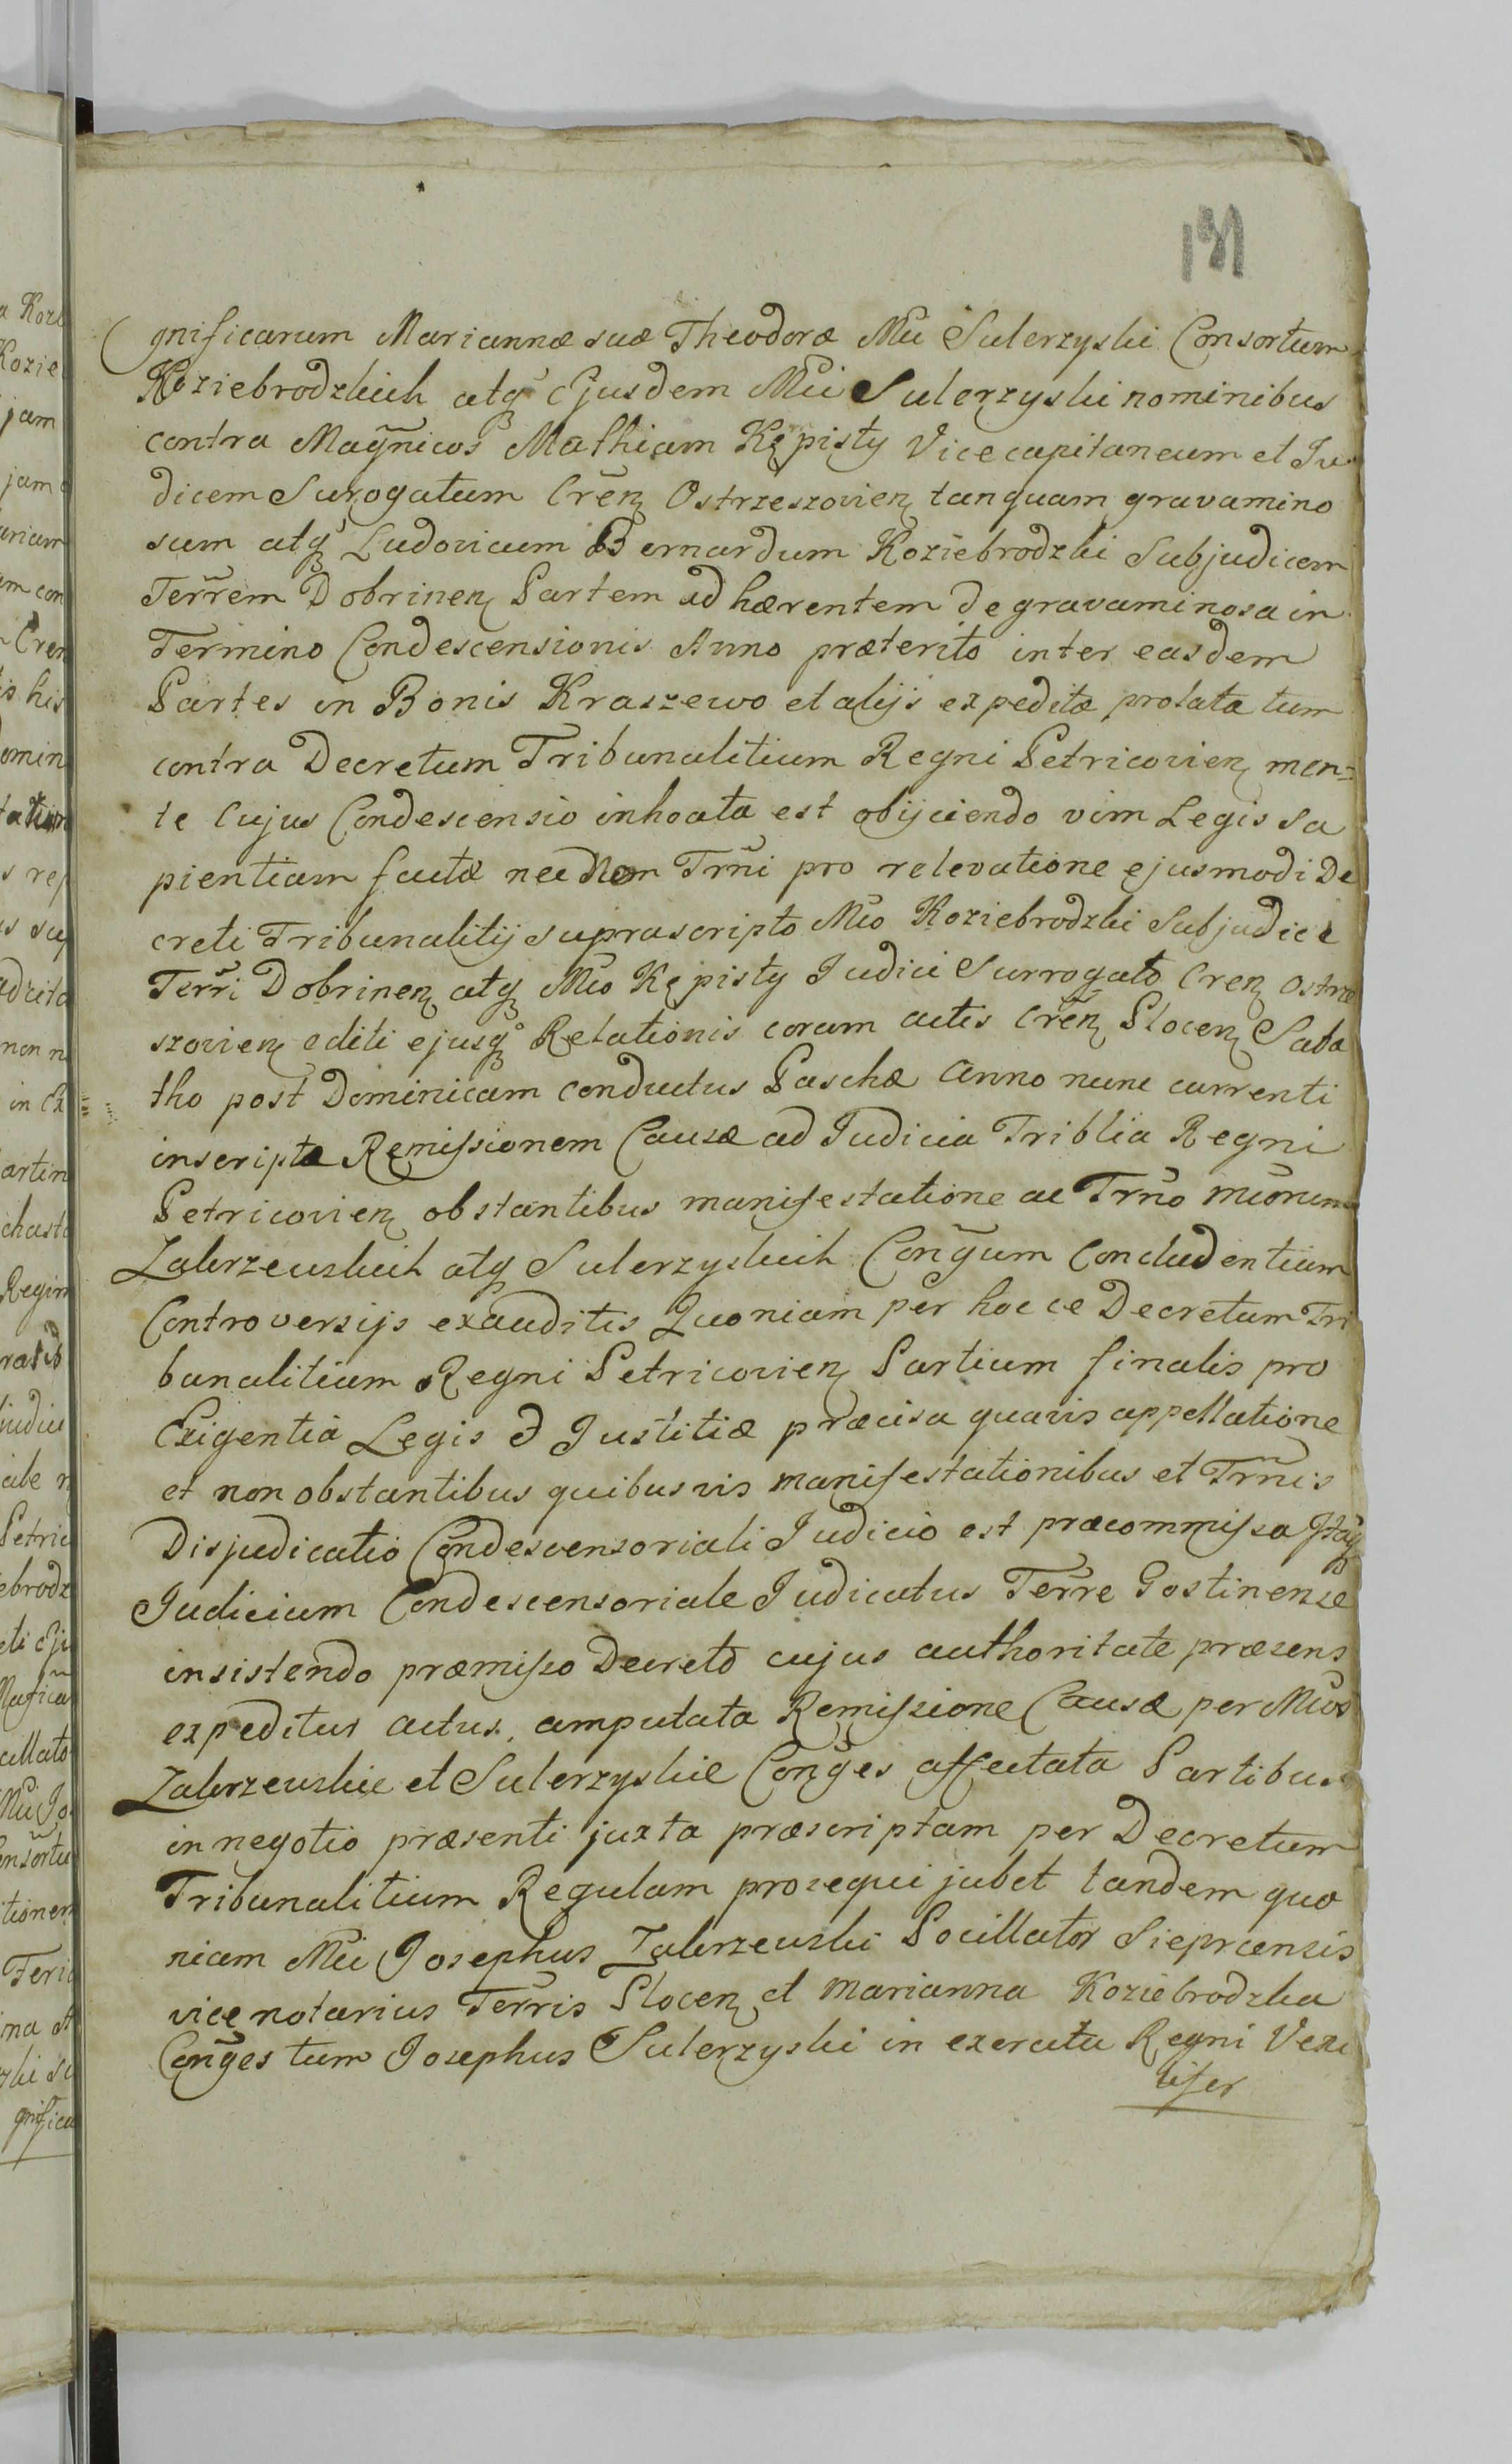 131
gnificarum Mariannæ suæ Theodoræ Mci Sulerzyski Consortum
Koziebrodzkich atq ejusdem Mci Sulerzyski nominibus
contra Magnicos Mathiam Kępisty Vicecapitaneum et Ju
dicem Surogatum Cren Ostrzeszovien tanquam gravamino
sum atq Ludovicum Bernardum Koziebrodzki Subjudicem
Terrem Dobrinen Partem adhærentem de gravaminosa in
Termino Condescensionis Anno præterito inter easdem
Partes in Bonis Kraszewo et alijs expedita prolata tum
contra Decretum Tribunalitium Regni Petricovien men=
te Cujus Condescensio inhoata est objiciendo vim Legis sa
pientiam factæ nec Non Trni pro relevatione ejusmodi De
creti Tribunalitij supra scripto Mco Koziebrodzki Subjudici
Terri Dobrinen atq Mco Kępisty Judici Surrogato Cren Ostrze
szovien editi ejusq Relationis coram actis Cren Plocen Saba
tho post Dominicam Conductus Paschæ Anno nunc currenti
inscriptæ Remissionem Causæ ad Judicia Triblia Regni
Petricovien obstantibus manifestatione ac Trno Mcorum
Zakrzewskich atq Sulerzyskich Congum Concludentium
Controversijs exauditis Quoniam per hocce Decretum Tri
bunalitium Regni Petricovien Partium finalis pro
Exigentia Legis & Justitiæ præcisa quavis appellatione
et non obstantibus quibusvis manifestationibus et Trnis
Disjudicatio Condescensoriali Judicio est præcommissa Itaq
Judicium Condescensoriale Judicatus Terre Gostinense
insistendo præmisso Decreto cujus authoritate præsens
expeditur actus, amputata Remissione Causæ per Mcos
Zakrzewskie et Sulerzyskie Conges affectata Partibus
in negotio præsenti juxta præscriptam per Decretum
Tribunalitium Regulam prosequi jubet tandem quo
niam Mci Josephus Zakrzewski Pocillator Sieprcensis
vice notarius Terris Plocen et Marianna Koziebrodzka
Conges tum Josephus Sulerzyski in exercitu Regni Vexi
lifer